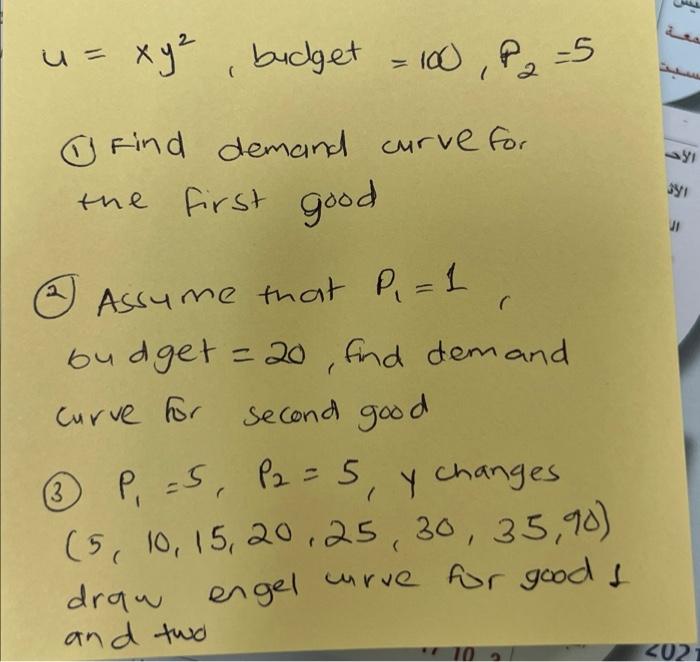 u = xy², budget = 100, P₂ = 5
① Find demand curve for
the first good
② Assume that P₁ = 1,
budget = 20, find demand
curve for second good
③ P₁ = 5, P₂ = 5, y changes
(5, 10, 15, 20, 25, 30, 35, 90)
draw engel curve for good 1
and two
الا
الا
202